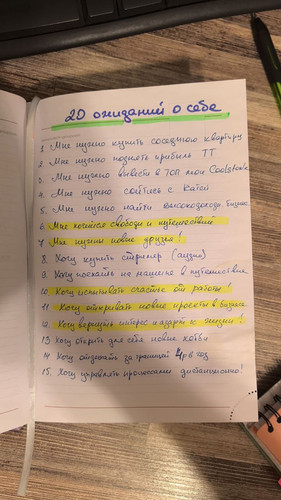 20 ожиданий о себе
1. Мне нужно купить соседнюю квартиру
2. Мне нужно поднять прибыль ТТ
3. Мне нужно вывести в ТОП мои
4. Мне нужно сойтись с Катей
5. Мне нужно найти высокодоходн бизнес
6. Мне хочется свободы и путешествий
7. Мне нужны новые друзья!
8. Хочу купить (аудио)
9. Хочу поехать на машине в путешествие
10. Хочу испытывать счастье от работы!
11. Хочу открывать новые проекты в бизнесе
12. Хочу вернуть интерес и азарт к жизни!
13 Хочу открыть для себя новые хобби
14 Хочу отдыхать за границей 4 р в год
15. Хочу управлять процессами дистанционно!